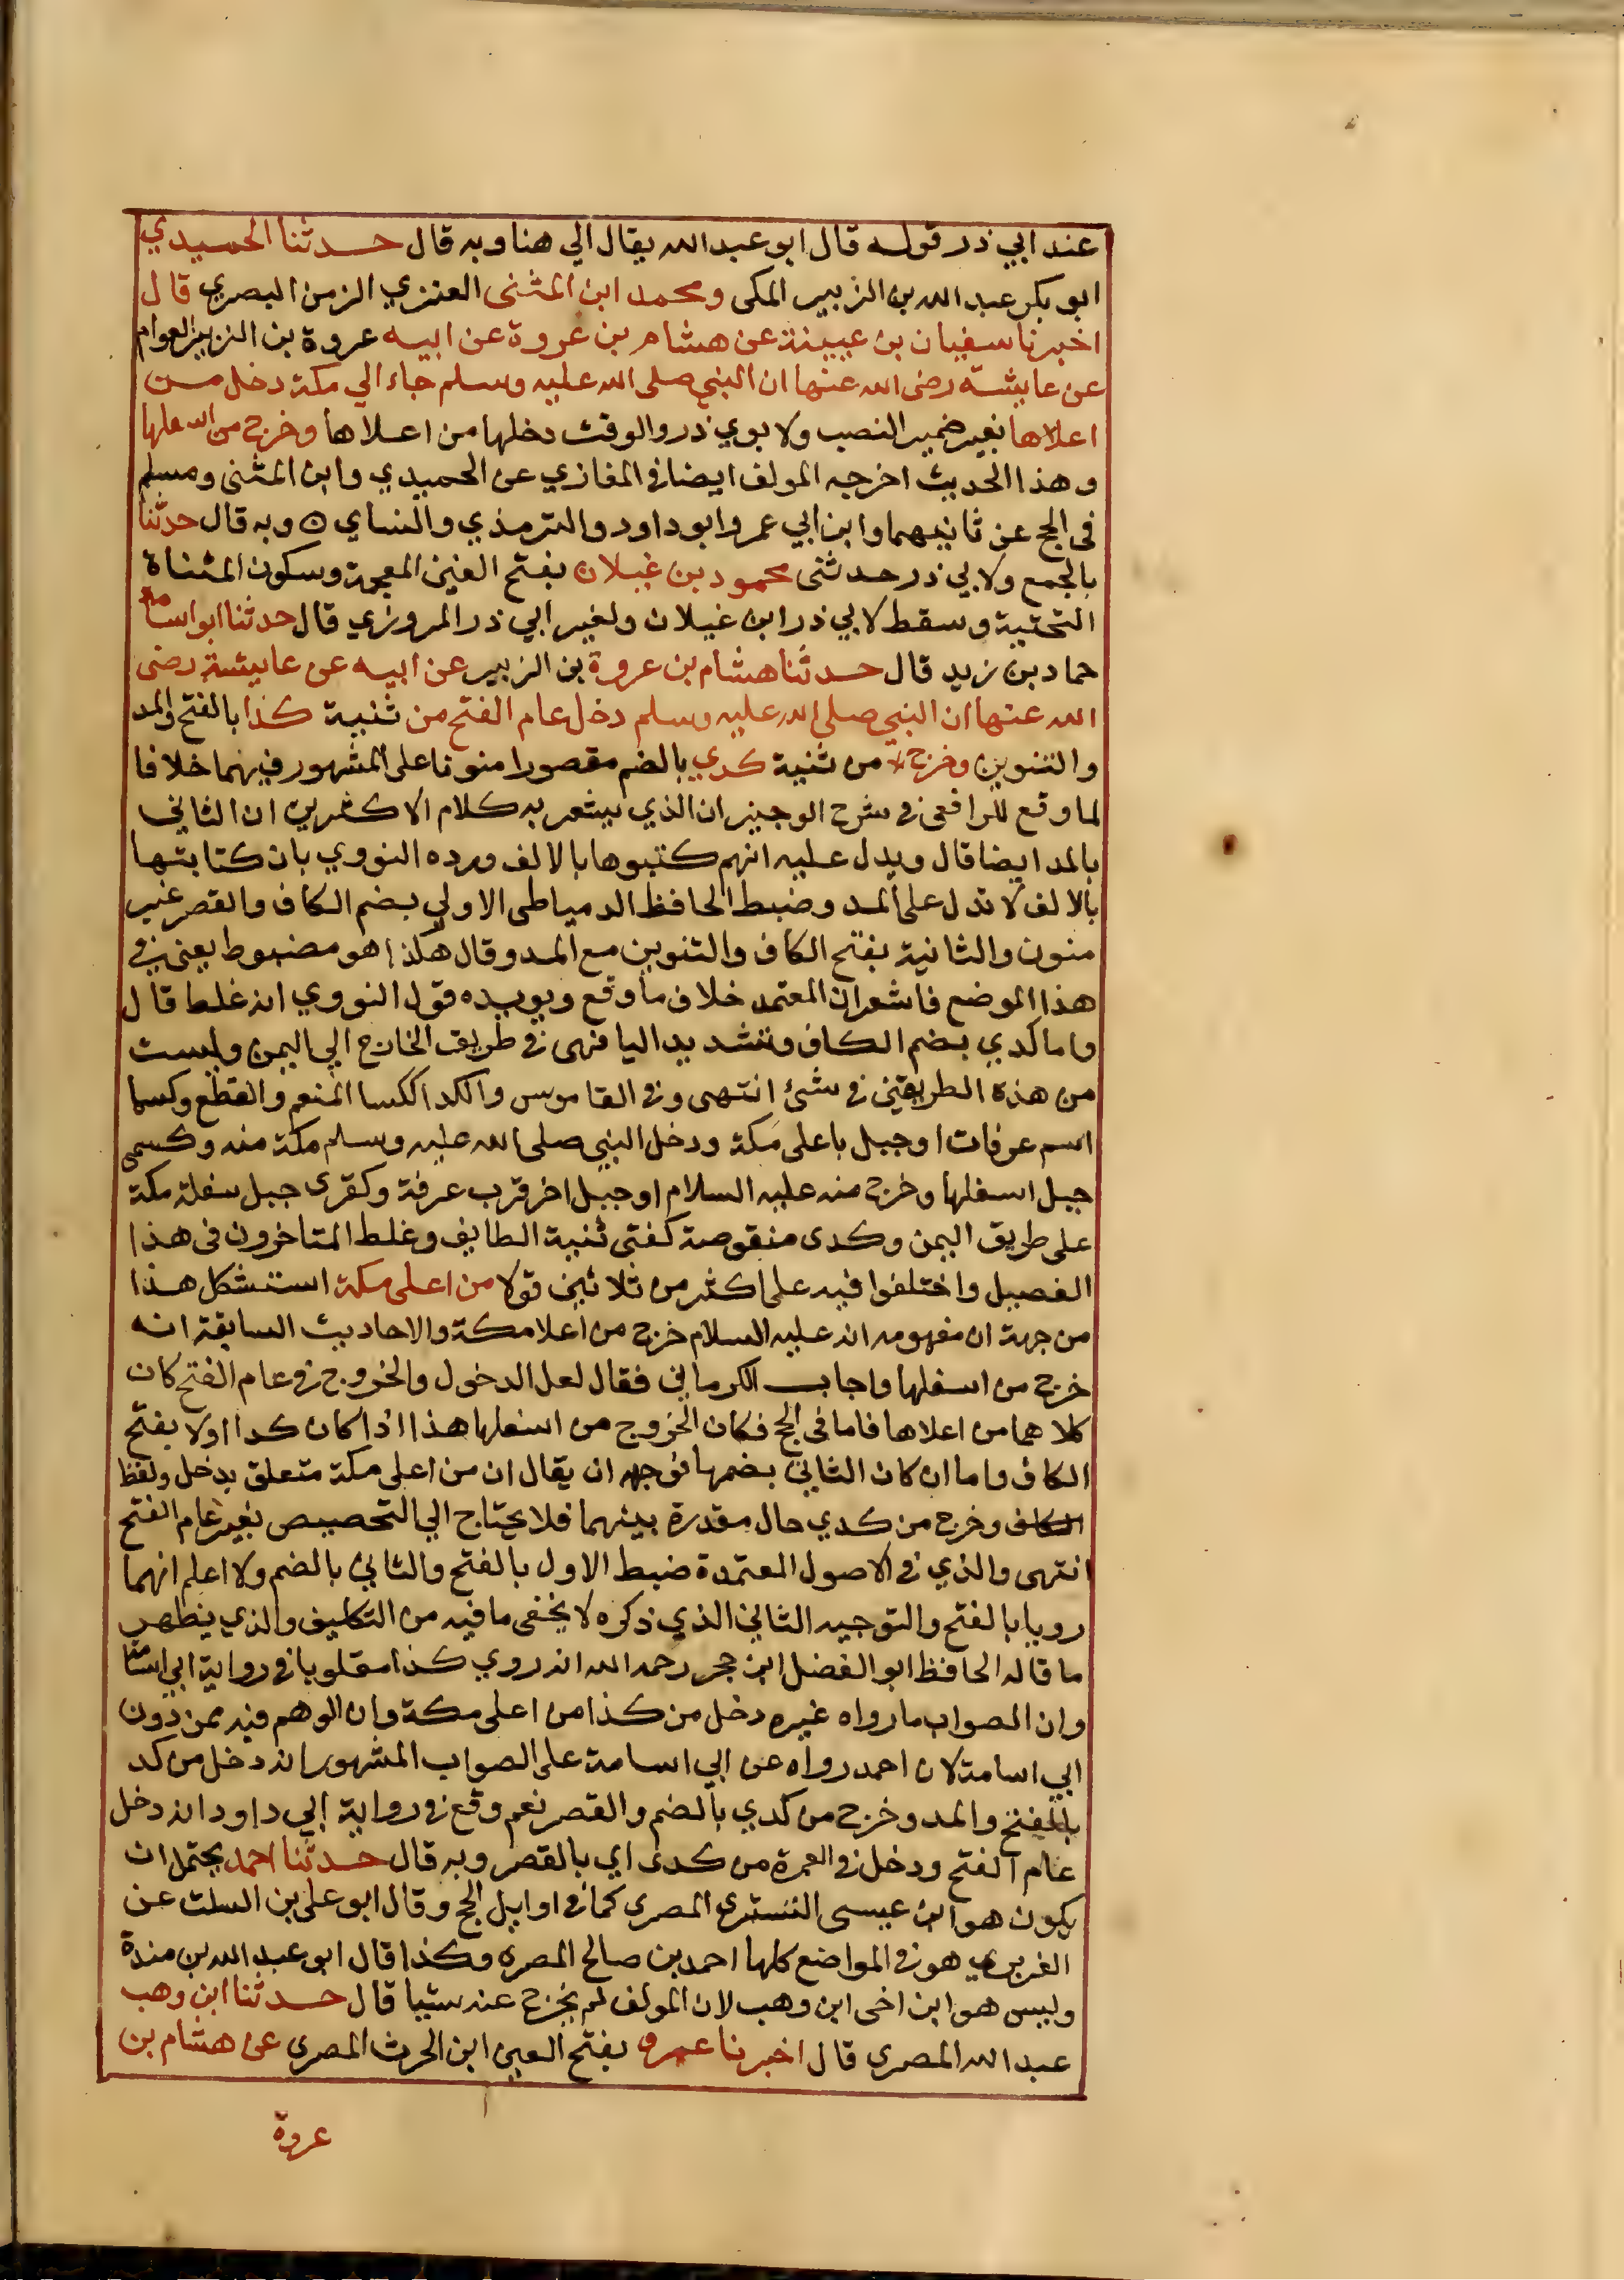 عند ابي ذر قوله قال ابو عبد الله يقال الي هنا وبه قال حدثنا الحميدي
ابو بكر عبد الله بن الزبير المكي ومحمد ابن المثنى العنزي الزمن البصري قال
اخبرنا سفيان بن عيينة عن هشام بن عروة عن ابيه عروة بن الزبير العوام
عن عايشة رضى الله عنها ان النبي صلى الله عليه وسلم جاء الي مكة دخل من
اعلاها بغير ضمير النصب ولابوي ذر والوقت دخلها من اعلاها وخرج من اسفلها
وهذا الحديث اخرجه المولف ايضا في المغازي عن الحميدي وابن المثنى ومسلم
في الحج عن ثانيهما وابن ابي عمر وابو داود والترمذي والنساي ه وبه قال حدثنا
بالجمع ولابي ذر حدثنى محمود بن غيلان بفتح الغين المعجمة وسكون المثناة
التحتية وسقط لابي ذر ابن غيلان ولغير ابي ذر المروزي قال حدثنا ابو اسامة
حماد بن زيد قال حدثنا هشام بن عروة بن الزبير عن ابيه عن عايشة رضى
الله عنها ان النبي صلى الله عليه وسلم دخل عام الفتح من ثنية كذا بالفتح والمد
والتنوين وخرج من ثنية كدي بالضم مقصورا منونا على المشهور فيهما خلافا
لما وقع للرافعى في شرح الوجيز ان الذي يشعر به كلام الاكثرين ان الثاني
بالمد ايضا قال ويدل عليه انهم كتبوها بالالف ورده النووي بان كتابتها
بالالف لا تدل على المد وضبط الحافظ الدمياطى الاولي بضم الكاف والقصر غير
منون والثانية بفتح الكاف والتنوين مع المد وقال هكذا هو مضبوط يعنى في
هذا الموضع فاشعر ان المعتمد خلاف ما وقع ويويده قول النووي انه غلط قال
واما كدي بضم الكاف وتشديد اليا فهى في طريق الخارج الي اليمن وليست
من هذه الطريقين في شئ انتهى وفي القاموس والكدا ككسا المنعم والقطع وكسما
اسم عرفات او جبل باعلى مكة ودخل النبي صلى الله عليه وسلم مكة منه وكسمى
جبل اسفلها وخرج منه عليه السلام او جبل اخر قرب عرفة وكقرى جبل سفلة مكة
على طريق اليمن وكدى منقوصة كفتى ثنية الطايف وغلط المتاخرون فى هذا
الفصيل واختلفوا فيه على اكثر من ثلاثين قولا من اعلى مكة استشكل هذا
من جهة ان مفهومه انه عليه السلام خرج من اعلا مكة والاحاديث السابقة انه
خرج من اسفلها واجاب الكرماني فقال لعل الدخول والخروج في عام الفتح كان
كلاهما من اعلاها فاما فى الحج فكان الخروج من اسفلها هذا اذا كان كدا اولا بفتح
الكاف واما ان كان الثاني بضمها فوجهه ان يقال ان من اعلى مكة متعلق بدخل ولفظ
الكاف وخرج من كدي حال مقدرة بينهما فلا يحتاج الي التخصيص بغير عام الفتح
انتهى والذي في الاصول المعتمدة ضبط الاول بالفتح والثاني بالضم ولا اعلم انهما
رويا بالفتح والتوجيه الثاني الذي ذكره لا يخفى ما فيه من التكليف والذي يظهر
ما قاله الحافظ ابو الفضل ابن حجر رحمه الله انه روي كذا مقلوبا في رواية ابي اسامة
وان الصواب ما رواه غيره دخل من كذا من اعلى مكة وان الوهم فيه ممن دون
ابي اسامة لان احمد رواه عن ابي اسامة على الصواب المشهور انه دخل من كد
بالفتح والمد وخرج من كدي بالضم والقصر نعم وقع في رواية ابي داود انه دخل
عام الفتح ودخل في العمرة من كدى اي بالقصر وبه قال حدثنا احمد يحتمل ان
يكون هو ابن عيسى التسترى المصرى كما في اوايل الحج وقال ابو على بن السلت عن
الفربري هو في المواضع كلها احمد بن صالح المصرى وكذا قال ابو عبد الله بن مندة
وليس هو ابن اخى ابن وهب لان المولف لم يخرج عنه شيا قال حدثنا ابن وهب
عبد الله المصرى قال اخبرنا عمرو بفتح العين ابن الحرث المصرى عن هشام بن
عروة